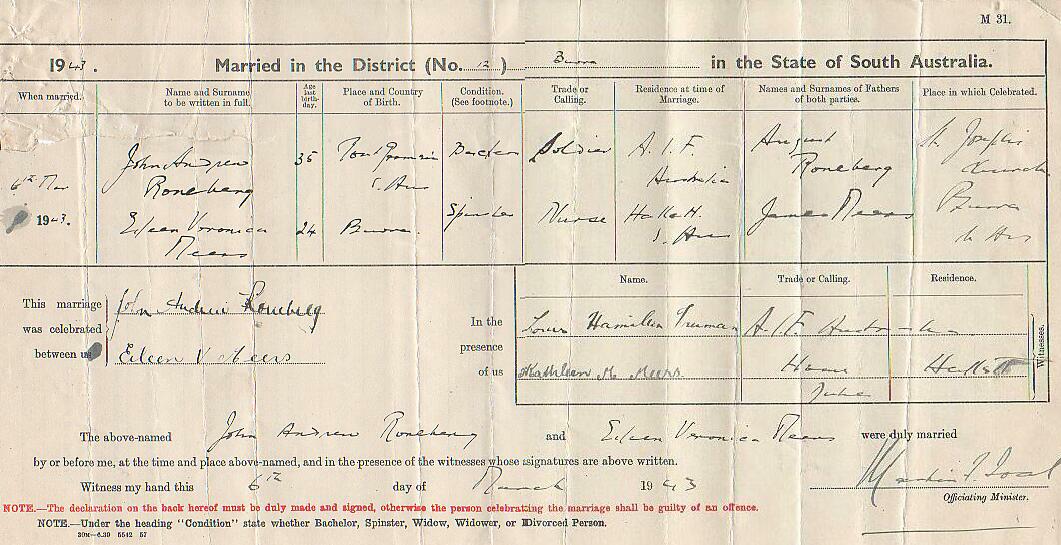 M 31.
1943. Married in the District (No. 12) Burra in the State of South Australia.
When married. Name and Surname to be written in full. Age last birthday. Place and Country of Birth. Condition. (See footnote.) Trade or Calling. Residence at time of Marriage. Names and Surnames of Fathers of both parties. Place in which Celebrated.
6th Mar 1943. John Andrew Roneberg 35 Port S. Aus Soldier A.I.F. Australia August Roneberg St Josephs Church
Eileen Veronica Meers 24 Burra. Spinster Nurse Hallett. S. Aus James Meers Burra
Name. Trade or Calling. Residence.
This marriage was celebrated between us
John Andrew Roneberg
Eileen V Meers
In the presence of us
Louis Hamilton Truman A.I.F
Kathleen M. Meers Home Hallett
Witnesses.
The above-named John Andrew Roneberg and Eileen Veronica Meers were duly married
by or before me, at the time and place above-named, and in the presence of the witnesses whose signatures are above written.
Witness my hand this 6th day of March 1943
Officiating Minister.
NOTE.—The declaration on the back hereof must be duly made and signed, otherwise the person celebrating the marriage shall be guilty of an offence.
NOTE.—Under the heading "Condition" state whether Bachelor, Spinster, Widow, Widower, or Divorced Person.
30M—6.39 5542 57